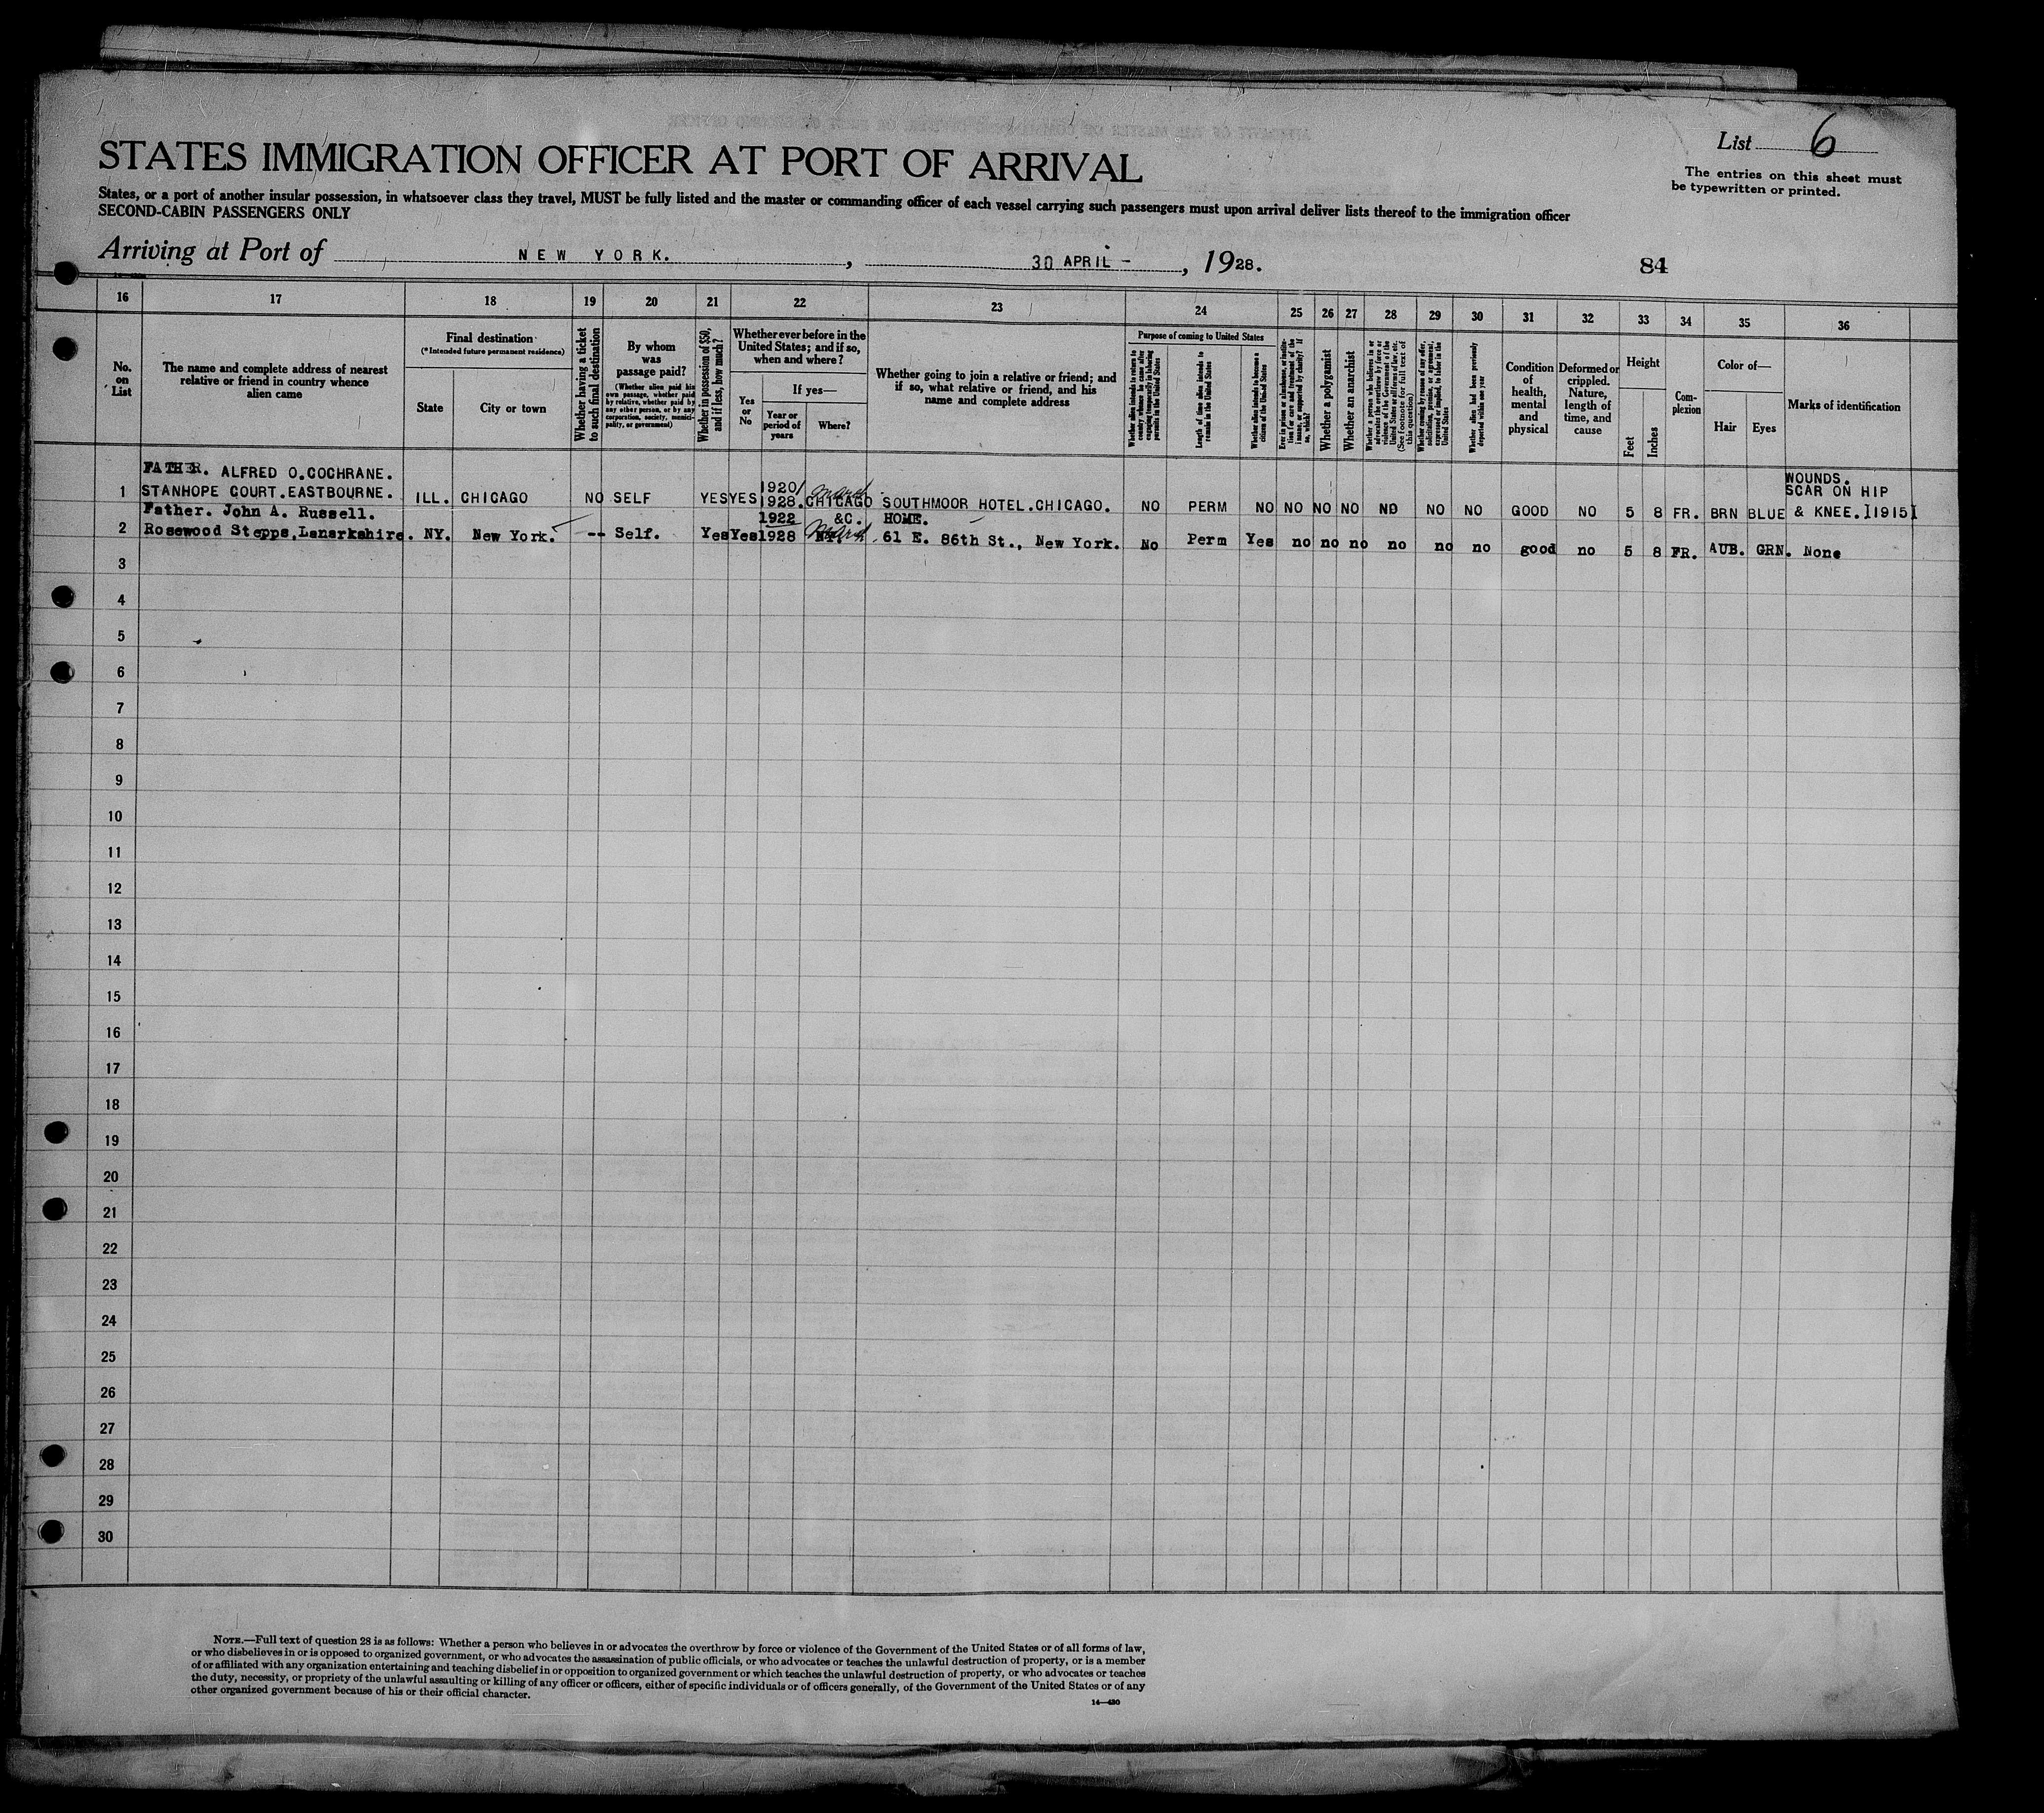 STATES IMMIGRATION OFFICER AT PORT OF ARRIVAL
List 6
The entries on this sheet must
be typewritten or printed.
States, or a port of another insular possession, in whatsoever class they travel, MUST be fully listed and the master or commanding officer of each vessel carrying such passengers must upon arrival deliver lists thereof to the immigration officer
SECOND-CABIN PASSENGERS ONLY
Arriving at Port of NEW YORK. , 30 APRIL - , 1928.
84
16 17 18 19 20 21 22 23 24 25 26 27 28 29 30 31 32 33 34 35 36
No. on List
The name and complete address of nearest
relative or friend in country whence
alien came
Final destination
(*Intended future permanent residence)
State
City or town
Whether having a ticket
to such final destination
By whom
was
passage paid?
(Whether alien paid his
own passage, whether paid
by relative, whether paid by
any other person, or by any
corporation, society, munici-
pality, or government)
Whether in possession of $50,
and if less, how much?
Whether ever before in the
United States; and if so,
when and where?
Yes
or
No
If yes—
Year or
period of
years
Where?
Whether going to join a relative or friend; and
if so, what relative or friend, and his
name and complete address
Purpose of coming to United States
Whether alien intends to return to
country whence he came after
engaging temporarily in laboring
pursuits in the United States
Length of time alien intends to
remain in the United States
Whether alien intends to become a
citizen of the United States
Ever in prison or almshouse, or institu-
tion for care and treatment of the
insane, or supported by charity? If
so, which?
Whether a polygamist
Whether an anarchist
Whether a person who believes in or
advocates the overthrow by force or
violence of the Government of the
United States or all forms of law, etc.
(See footnote for full text of
this question)
Whether coming by reason of any offer,
solicitation, promise, or agreement,
expressed or implied, to labor in the
United States
Whether alien had been previously
deported within one year
Condition
of
health,
mental
and
physical
Deformed or
crippled.
Nature,
length of
time, and
cause
Height
Feet
Inches
Com-
plexion
Color of—
Hair
Eyes
Marks of identification
FATHER. ALFRED O.COCHRANE. 1920/ March WOUNDS.
SCAR ON HIP
1 STANHOPE COURT.EASTBOURNE. ILL. CHICAGO NO SELF YES YES 1928. CHICAGO SOUTHMOOR HOTEL.CHICAGO. NO PERM NO NO NO NO NO NO NO GOOD NO 5 8 FR. BRN BLUE & KNEE.]1915]
Father. John A. Russell. 1922 &C. HOME.
2 Rosewood Stepps,Lanarkshire. NY. New York. -- Self. Yes Yes 1928 NY. March 61 E. 86th St., New York. No Perm Yes no no no no no no good no 5 8 FR. AUB. GRN. None
3
4
5
6
7
8
9
10
11
12
13
14
15
16
17
18
19
20
21
22
23
24
25
26
27
28
29
30
NOTE.—Full text of question 28 is as follows: Whether a person who believes in or advocates the overthrow by force or violence of the Government of the United States or of all forms of law,
or who disbelieves in or is opposed to organized government, or who advocates the assassination of public officials, or who advocates or teaches the unlawful destruction of property, or is a member
of or affiliated with any organization entertaining and teaching disbelief in or opposition to organized government or which teaches the unlawful destruction of property, or who advocates or teaches
the duty, necessity, or propriety of the unlawful assaulting or killing of any officer or officers, either of specific individuals or of officers generally, of the Government of the United States or of any
other organized government because of his or their official character.
14—430